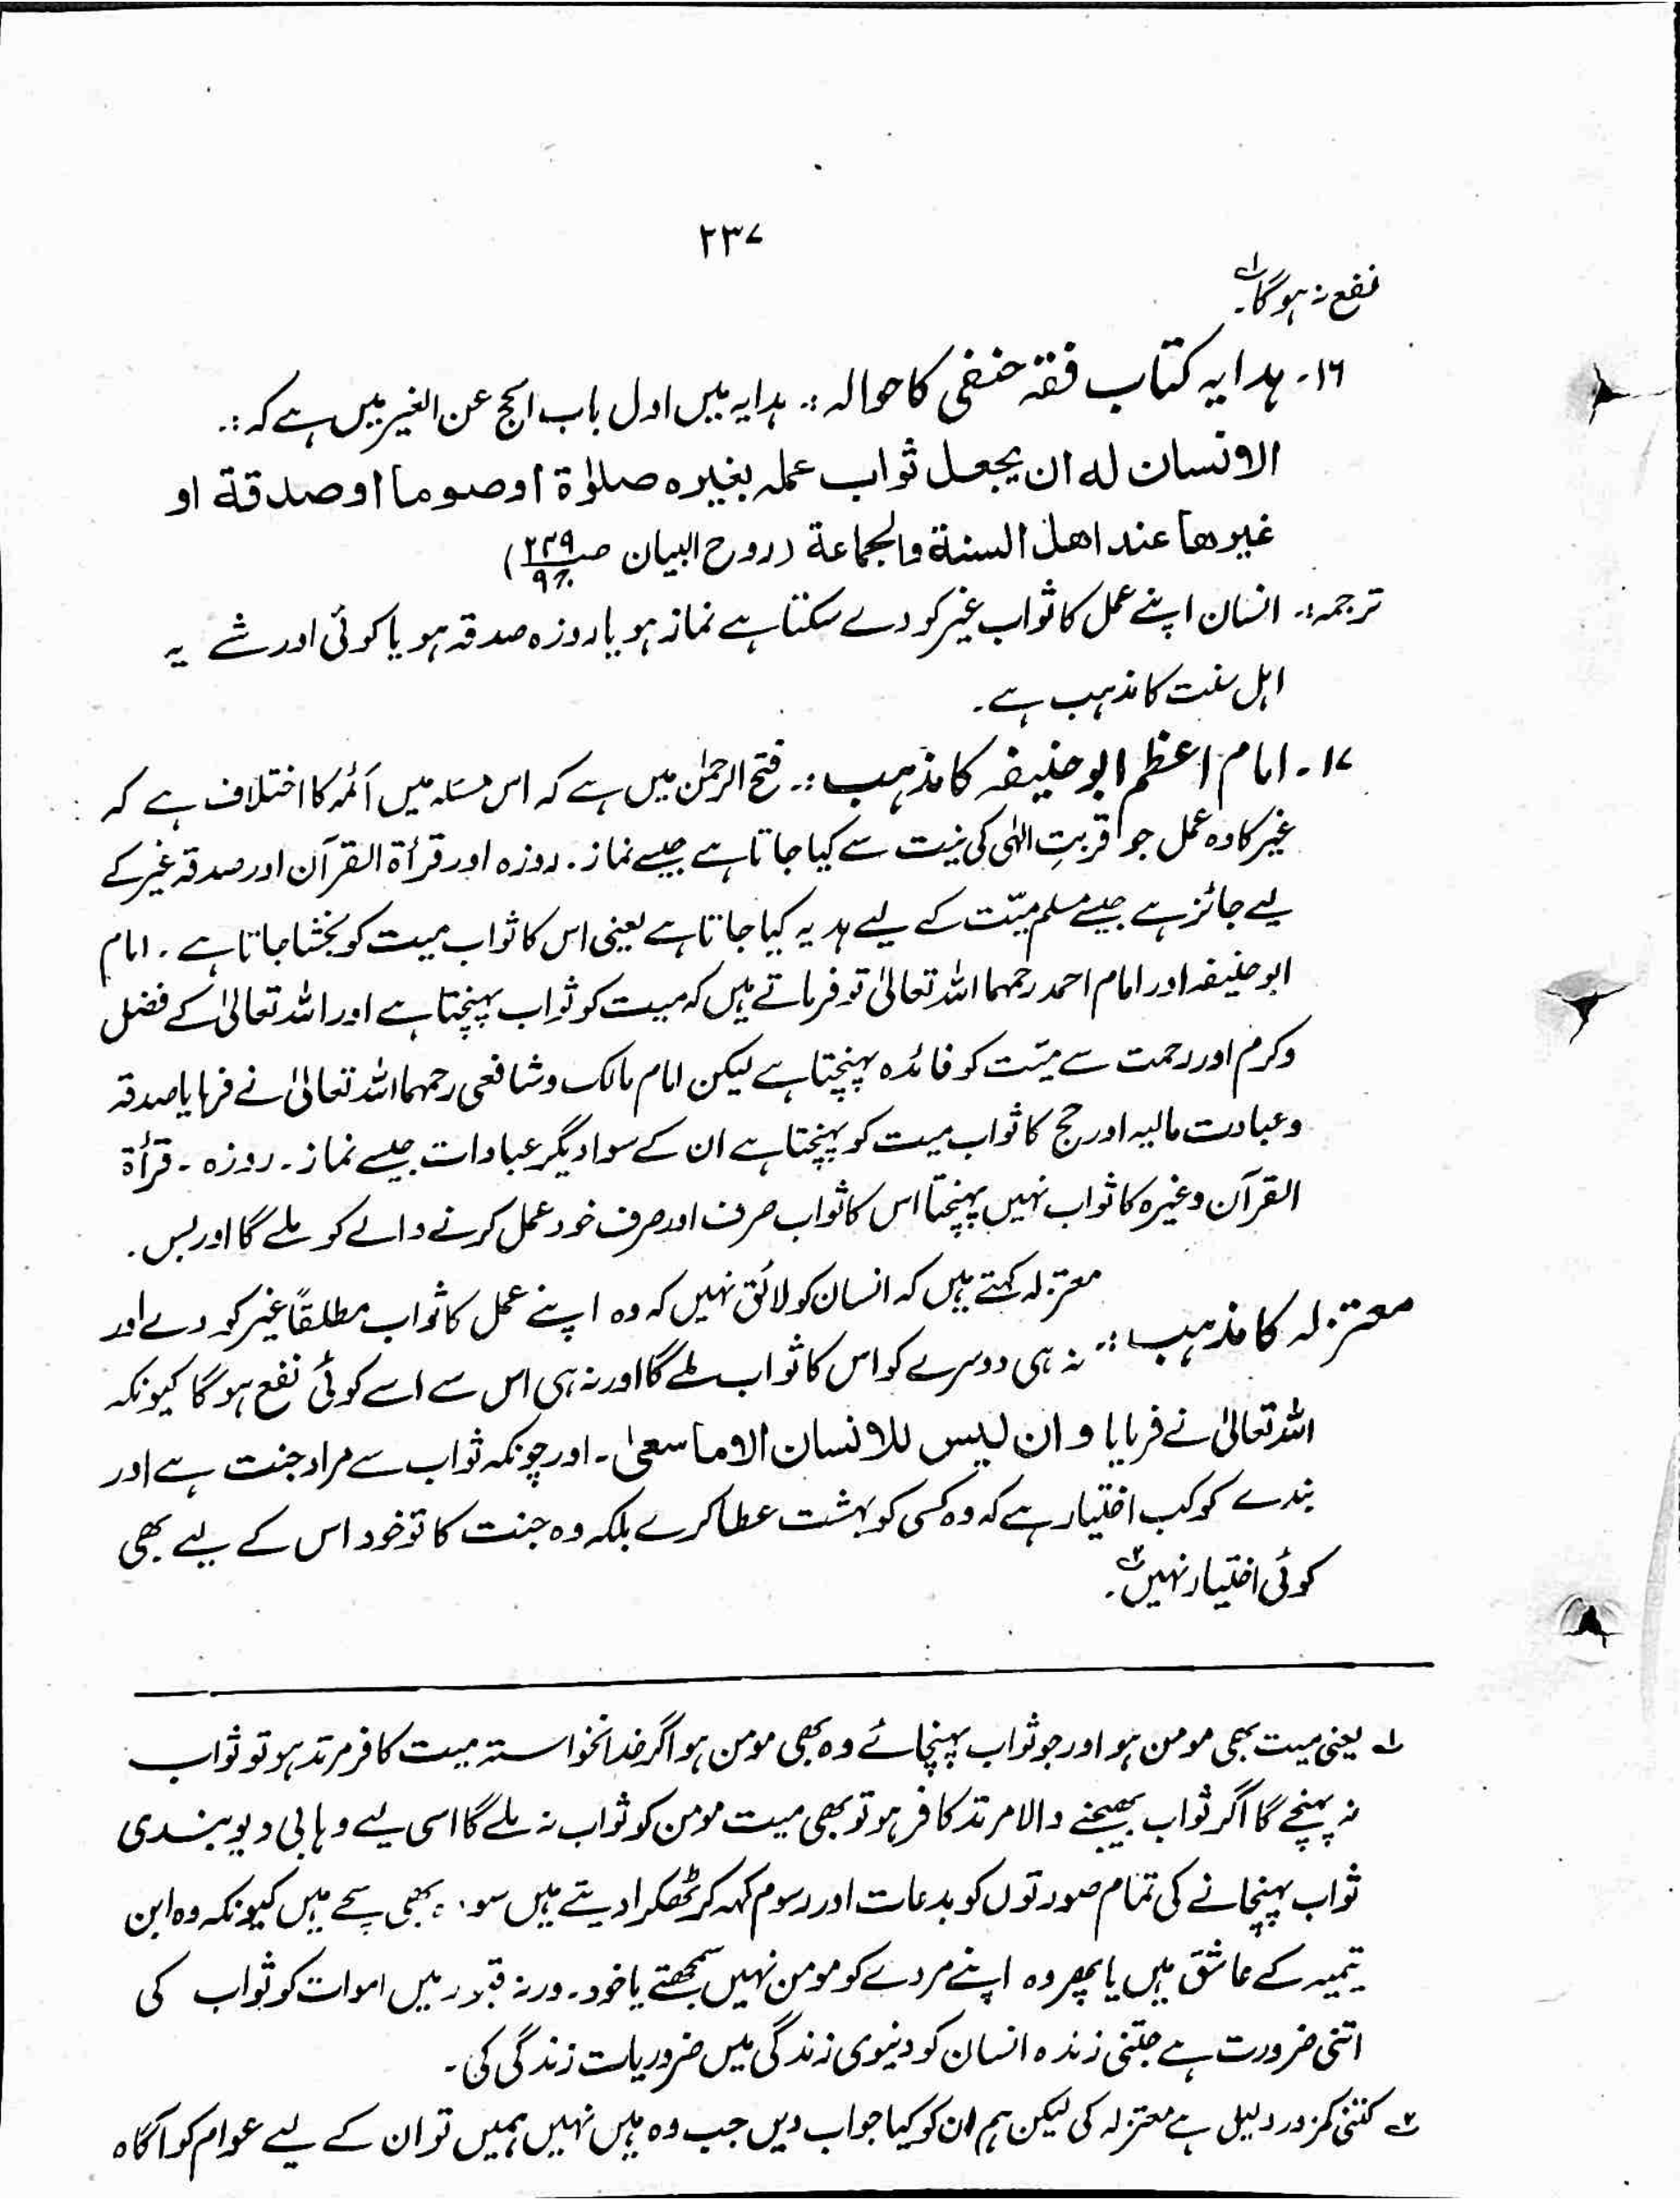 ۲۳۷
نفع نہ ہوگا۔ؔ۱
۱۶۔ ہدایہ کتاب فقہ حنفی کا حوالہ :۔ ہدایہ میں اول باب الحج عن الغیر میں ہے کہ :۔
الانسان لہ ان یجعل ثواب عملہ بغیرہ صلوٰۃ اوصوما اوصدقۃ او
غیرھا عند اھل السنۃ والجماعۃ (روح البیان صـ ۲۴۹/ج۹)
ترجمہ:۔ انسان اپنے عمل کا ثواب غیر کو دے سکتا ہے نماز ہو یا روزہ صدقہ ہو یا کوئی اور شے یہ
اہل سنت کا مذہب ہے۔
۱۷۔ امام اعظم ابوحنیفہ کا مذہب :۔ فتح الرحمٰن میں ہے کہ اس مسئلہ میں آئمہ کا اختلاف ہے کہ
غیر کا وہ عمل جو قربتِ الہٰی کی نیت سے کیا جاتا ہے جیسے نماز۔ روزہ اور قرأۃ القرآن اور صدقہ غیر کے
لیے جائز ہے جیسے مسلم میّت کے لیے ہدیہ کیا جاتا ہے یعنی اس کا ثواب میت کو بخشا جاتا ہے۔ امام
ابوحنیفہ اور امام احمد رحمہما اللہ تعالیٰ تو فرماتے ہیں کہ میت کو ثواب پہنچتا ہے اور اللہ تعالیٰ کے فضل
وکرم اور رحمت سے میّت کو فائدہ پہنچتا ہے لیکن امام مالک و شافعی رحمہما اللہ تعالیٰ نے فرمایا صدقہ
وعبادت مالیہ اور حج کا ثواب میت کو پہنچتا ہے ان کے سوا دیگر عبادات جیسے نماز۔ روزہ۔ قرأۃ
القرآن وغیرہ کا ثواب نہیں پہنچتا اس کا ثواب صرف اور صرف خود عمل کرنے والے کو ملے گا اور بس۔
معتزلہ کا مذہب :۔ معتزلہ کہتے ہیں کہ انسان کو لائق نہیں کہ وہ اپنے عمل کا ثواب مطلقاً غیر کو دے اور
نہ ہی دوسرے کو اس کا ثواب ملے گا اور نہ ہی اس سے اسے کوئی نفع ہوگا کیونکہ
اللہ تعالیٰ نے فرمایا و ان لیس للانسان الا ما سعیٰ۔ اور چونکہ ثواب سے مراد جنت ہے اور
بندے کو کب اختیار ہے کہ وہ کسی کو بہشت عطا کرے بلکہ وہ جنت کا تو خود اس کے لیے بھی
کوئی اختیار نہیں۔ؔ۲
؎۱ یعنی میت بھی مومن ہو اور جو ثواب پہنچائے وہ بھی مومن ہو اگر خدانخواستہ میت کافر مرتد ہو تو ثواب
نہ پہنچے گا اگر ثواب بھیجنے والا مرتد کافر ہو تو بھی میت مومن کو ثواب نہ ملے گا اسی لیے وہابی دیوبندی
ثواب پہنچانے کی تمام صورتوں کو بدعات اور رسوم کہہ کر ٹھکرا دیتے ہیں سو بھی سچے ہیں کیونکہ وہ ابن
تیمیہ کے عاشق ہیں یا پھر وہ اپنے مردے کو مومن نہیں سمجھتے یا خود۔ ورنہ قبور میں اموات کو ثواب کی
اتنی ضرورت ہے جتنی زندہ انسان کو دنیوی زندگی میں ضروریات زندگی کی۔
؎۲ کتنی کمزور دلیل ہے معتزلہ کی لیکن ہم ان کو کیا جواب دیں جب وہ ہیں نہیں ہمیں تو ان کے لیے عوام کو آگاہ